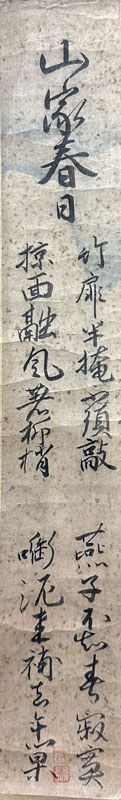 山家春日
竹扉半掩不須敲
掠面融風著柳梢
燕子不知春寂寞
啣泥来補去年巣